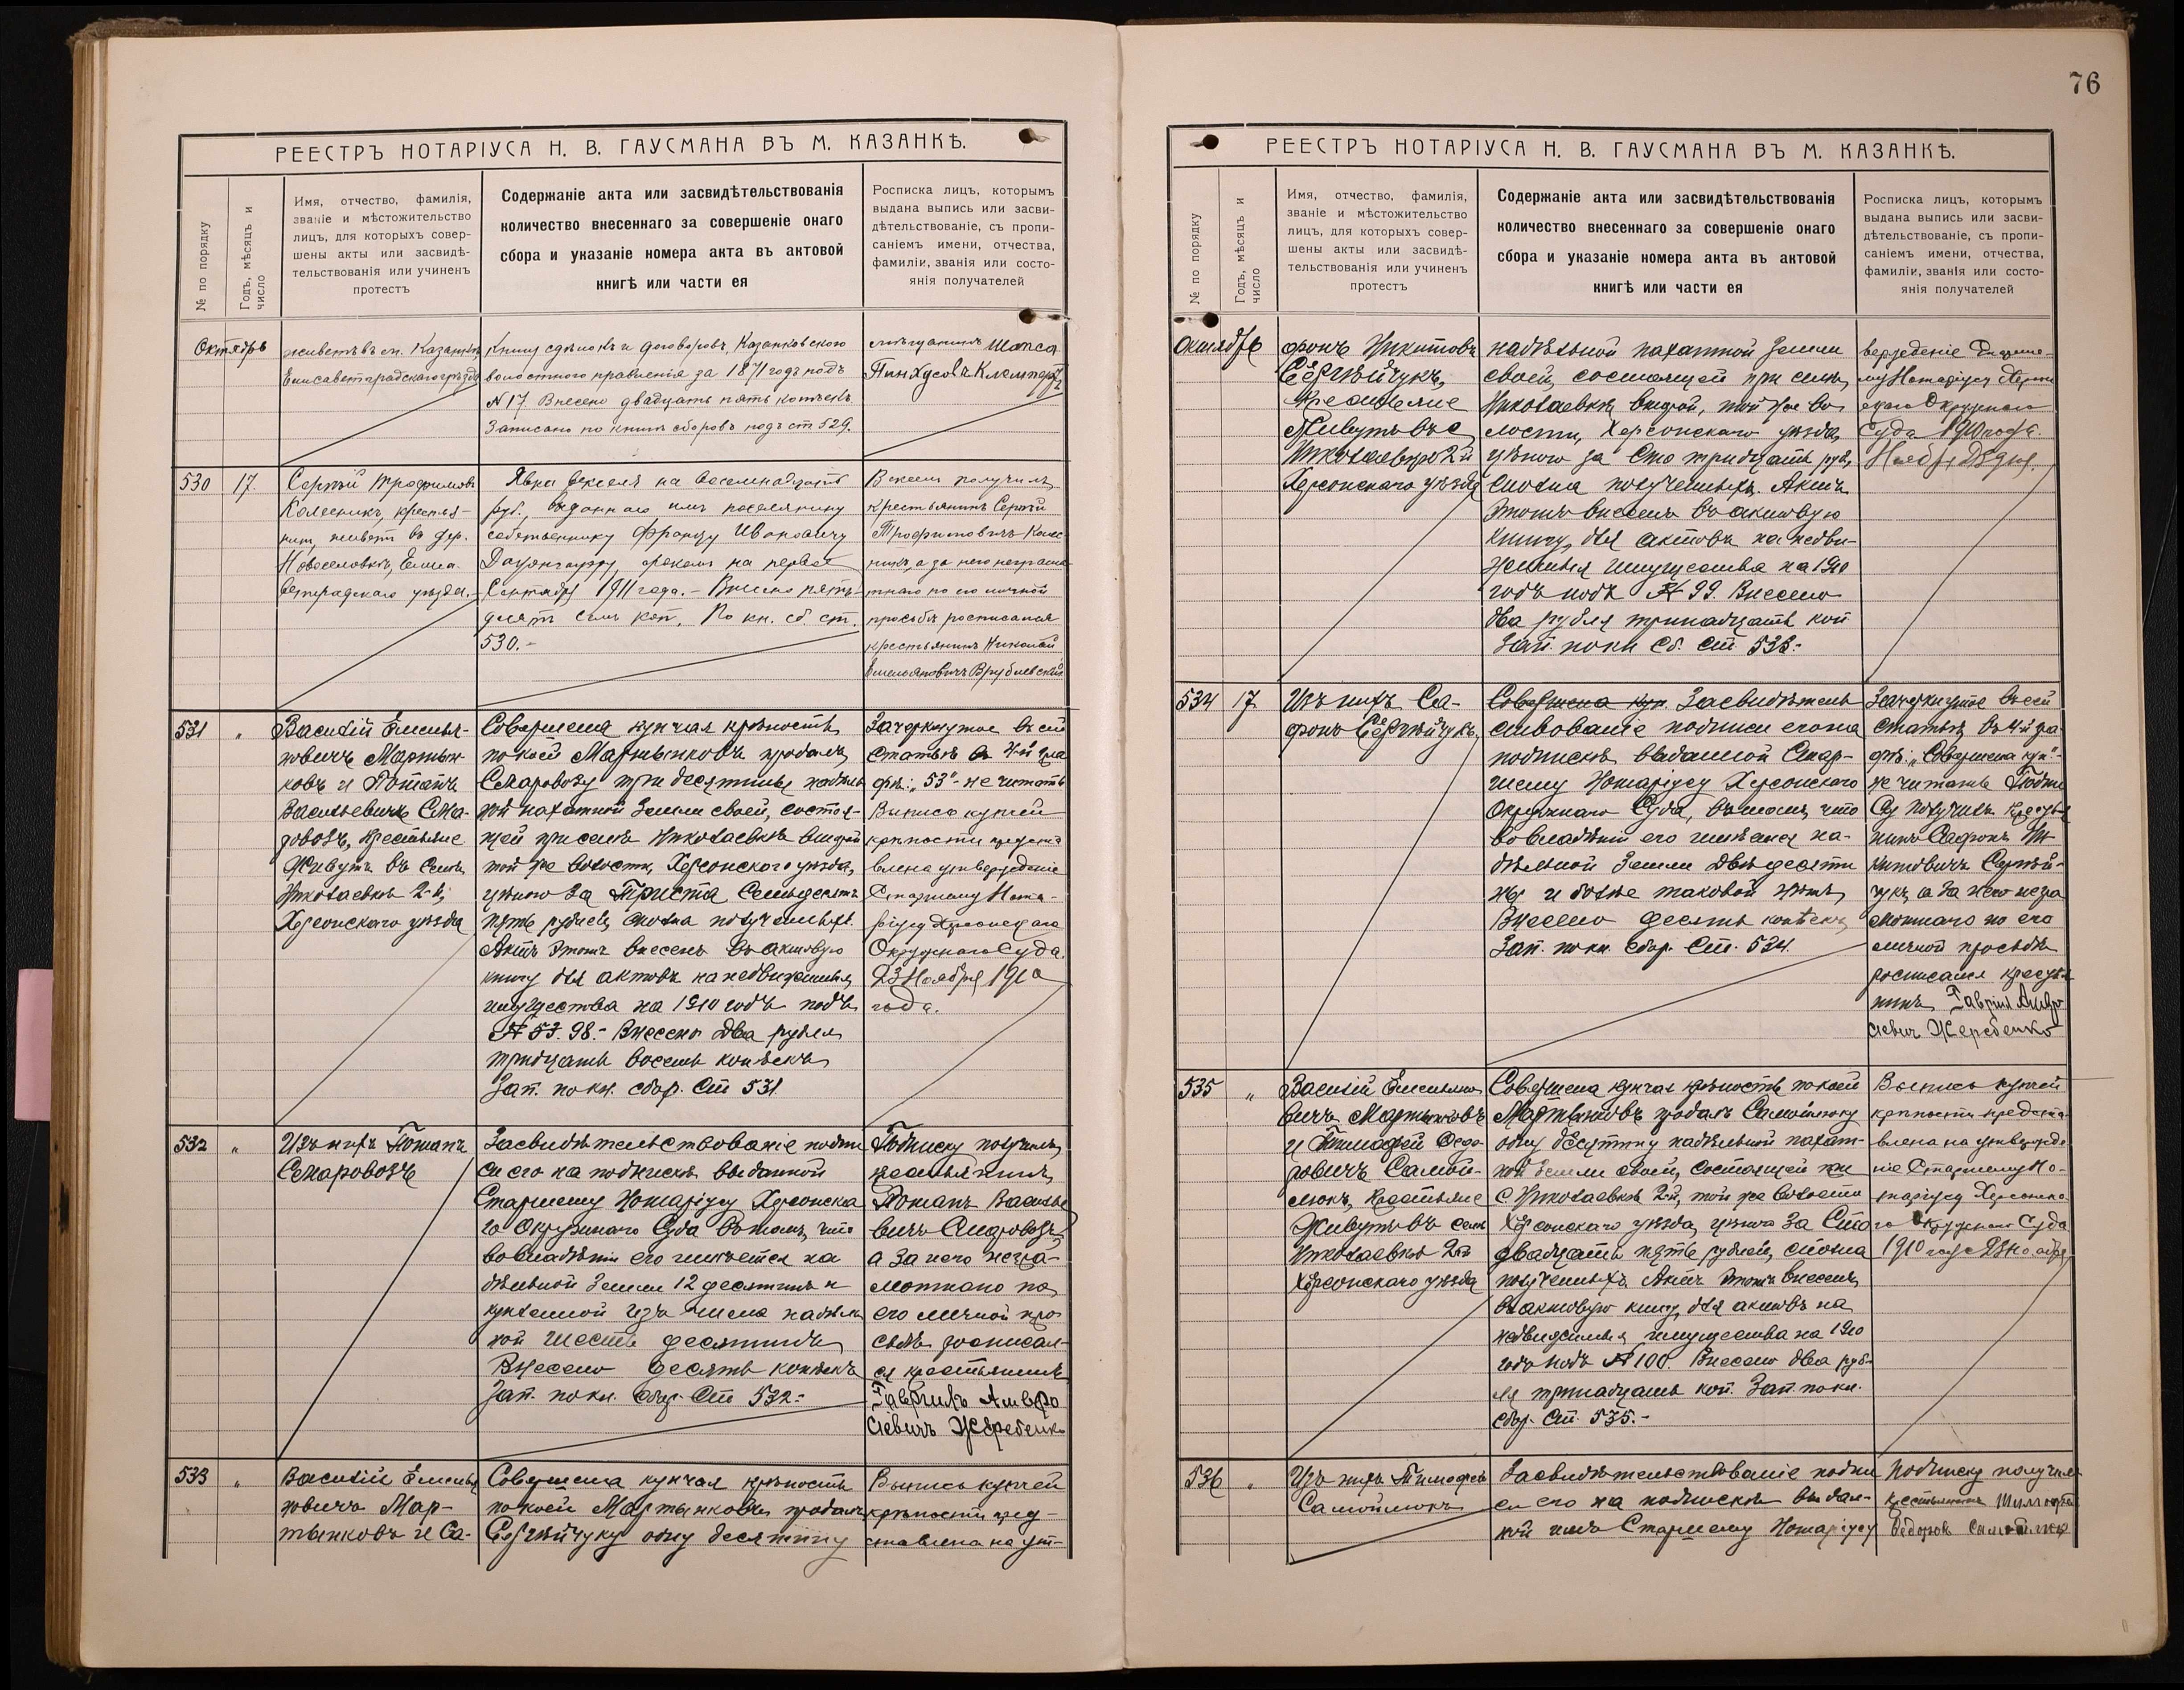 76
РЕЕСТРЪ НОТАРІУСА Н. В. ГАУСМАНА ВЪ М. КАЗАНКѢ.
№ по порядку
Годъ, мѣсяцъ и
число
Имя, отчество, фамилія,
званіе и мѣстожительство
лицъ, для которыхъ совер-
шены акты или засвидѣ-
тельствованія или учиненъ
протестъ
Содержаніе акта или засвидѣтельствованія
количество внесеннаго за совершеніе онаго
сбора и указаніе номера акта въ актовой
книгѣ или части ея
Росписка лицъ, которымъ
выдана выпись или засви-
дѣтельствованіе, съ пропи-
саніемъ имени, отчества,
фамиліи, званія или состо-
янія получателей
Октябрь
живетъ въ м. Казанкѣ,
Елисаветградскаго уѣзда
Книгу сдѣлокъ и договоровъ, Казанковскаго
волостного правленія за 1871 годъ подъ
№ 17. Внесено двадцать пять копѣекъ.
Записано по книгѣ сборовъ подъ ст 529.
мѣщанинъ
Пинхусовъ
530
17.
Сергѣй Трофимовъ
Колесникъ, крестья-
нин, живетъ въ дер.
Новоселовкѣ, Елиса-
ветградскаго уѣзда.
Явка векселя на восемнадцать
руб., выданнаго имъ поселянину
собственнику Францу Ивановичу
срокомъ на первое
Сентября 1911 года. - Внесено пять-
десятъ семь коп. По кн. сб. ст.
530.-
Вексель получилъ
крестьянинъ Сергѣй
Трофимовичъ Колес-
никъ, а за него неграмо-
тнаго по его личной
просьбѣ росписался
крестьянинъ Николай
Емельяновичъ Врублевскій
531
"
Василій Емелья-
новичъ Мартын-
ковъ и Потапъ
Васильевичъ Ска-
ровозъ, крестьяне
Живутъ въ селѣ
Николаевкѣ 2-й,
Херсонскаго уѣзда
Совершена купчая крѣпость,
по коей Мартынковъ продалъ
Скаровозу три десятины надѣль
ной пахатной земли своей, состоя-
щей при селѣ Николаевкѣ второй
той же волости, Херсонскаго уѣзда,
цѣною за Триста Семьдесятъ
пять рублей, сполна полученныхъ.
Актъ этотъ внесенъ въ актовую
книгу для актовъ на недвижимыя
имущества на 1910 годъ подъ
№ 53. 98.- Внесено два рубля
тридцать восемь копѣекъ
Зап. по кн. сбор. Ст 531
Зачеркнутое въ сей
статьѣ въ 4й гра
фѣ: "53"- не читать
Выпись купчей
крѣпости представ
влена утвержденіе
Старшему Нота-
ріусу Херсонскаго
Окружнаго Суда.
23 Ноября 1910
года.
532
"
Изъ нихъ Потапъ
Скаровозъ
Засвидѣтельствованіе подпи
си его на подпискѣ выданной
Старшему Нотаріусу Херсонска
го Окружнаго Суда въ томъ, что
во владѣніи его имѣется на
дѣльной земли 12 десятинъ и
купленной изъ числа надѣль
ной шесть десятинъ
Внесено десять копѣекъ
Зап. по кн. сбор. Ст 532.-
Подписку получилъ
крестьянинъ
Потапъ Василье
вичъ Скаровозъ,
а за него негра-
мотнаго по
его личной про
сьбѣ росписал-
ся крестьянинъ
Гавріилъ Амвро
сіевичъ Жеребенко
533
"
Василій Емелья
новичъ Мар-
тынковъ и Са-
Совершена купчая крѣпость
по коей Мартынковъ продалъ
Сергѣйчуку одну десятину
Выпись купчей
крѣпости пред-
ставлена на ут-
РЕЕСТРЪ НОТАРІУСА Н. В. ГАУСМАНА ВЪ М. КАЗАНКѢ.
№ по порядку
Годъ, мѣсяцъ и
число
Имя, отчество, фамилія,
званіе и мѣстожительство
лицъ, для которыхъ совер-
шены акты или засвидѣ-
тельствованія или учиненъ
протестъ
Содержаніе акта или засвидѣтельствованія
количество внесеннаго за совершеніе онаго
сбора и указаніе номера акта въ актовой
книгѣ или части ея
Росписка лицъ, которымъ
выдана выпись или засви-
дѣтельствованіе, съ пропи-
саніемъ имени, отчества,
фамиліи, званія или состо-
янія получателей
Октябрь
фонъ Никитовъ
Сергѣйчукъ,
крестьяне
Живутъ въ с
Николаевкѣ 2й
Херсонскаго уѣзда
надѣльной пахатной земли
своей, состоящей при селѣ
Николаевкѣ второй, той же во
лости, Херсонскаго уѣзда,
цѣною за Сто тридцать руб,
сполна полученныхъ. Актъ
этотъ внесенъ въ актовую
книгу, для актовъ на недви-
жимыя имущества на 1910
годъ подъ № 99. Внесено
два рубля тринадцать коп
Зап. по кн Сб. Ст. 533.-
вержденіе Старше-
му Нотаріусу Херсон
скаго Окружнаго
Суда 1910 года.
Ноября 23 дня.
534
17
Изъ нихъ Са-
фонъ Сергѣйчукъ,
Совершена куп. Засвидѣтель
ствованіе подписи его на
подпискѣ выданной Стар-
шему Нотаріусу Херсонскаго
Окружнаго Суда, въ томъ, что
во владѣніи его имѣется на-
дѣльной земли двѣ десяти
ны и болѣе таковой нѣтъ,
Внесено десять копѣекъ
Зап. по кн. сбор. Ст. 534.
Зачеркнутое въ сей
статьѣ въ 4й гра
фѣ: "Совершена куп"-
не читать Подпи
ску получилъ крестья
нинъ Сафонъ Ни-
китовичъ Сергѣй-
чукъ, а за него негра
мотнаго по его
личной просьбѣ
росписался крестья
нинъ Гавріилъ Амвро
сіевич Жеребенко
535
"
Василій Емельяно
вичъ Мартынковъ
и Тимофей Ѳедо-
ровичъ Самой-
люкъ, крестьяне
Живутъ въ селѣ
Николаевкѣ 2й
Херсонскаго уѣзда
Совершена купчая крѣпость по коей
Мартынковъ продалъ Самойлюку
одну десятину надѣльной пахат-
ной земли своей, состоящей при
с. Николаевкѣ 2й, той же волости
Херсонскаго уѣзда, цѣною за Сто
двадцать пять рублей, сполна
полученныхъ. Актъ этотъ внесенъ
въ актовую книгу, для актовъ на
недвижимыя имущества на 1910
годъ подъ № 100. Внесено два руб-
ля тринадцать коп. Зап. по кн.
сбор. Ст. 535.-
Выпись купчей
крѣпости предста-
влена на утвержде
ніе Старшему Но-
таріусу Херсонска
го Окружнаго Суда
1910 года 23 ноября
536
"
Изъ нихъ Тимофей
Самойлюкъ
Засвидѣтельствованіе подпи
си его на подпискѣ выдан-
ной имъ Старшему Нотаріусу
Подписку получилъ
крестьянинъ Тимофей
Ѳедоровъ Самойлюкъ